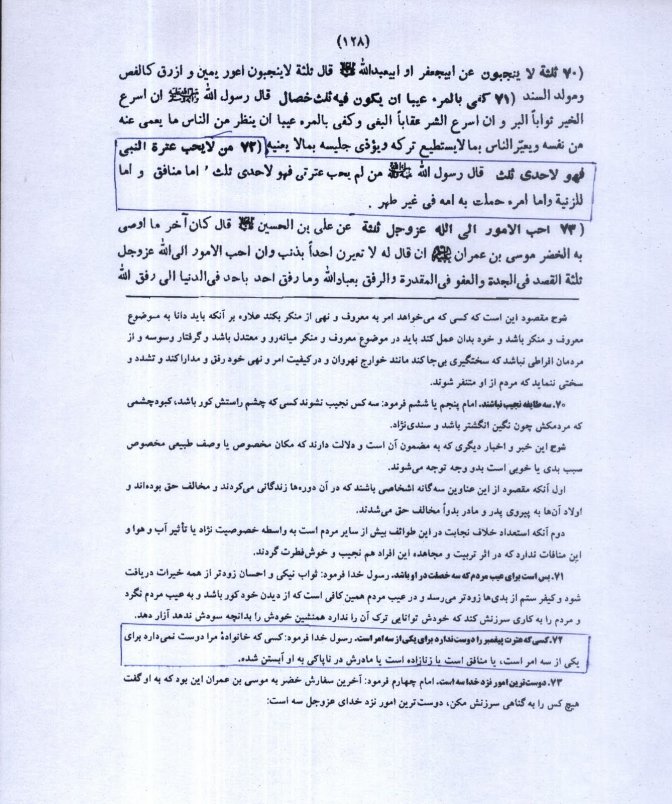 (۱۲۸)
(۷۰ ثلثة لا ینجبون عن ابیجعفر او ابیعبدالله قال ثلثة لاینجبون اعور یمین و ازرق کالفص
ومولد السند (۷۱ کفی بالمرء عیبا ان یکون فیه ثلث خصال قال رسول الله ان اسرع
الخیر ثواباً البر و ان اسرع الشر عقاباً البغی وکفی بالمرء عیبا ان ینظر من الناس ما یعمی عنه
من نفسه ویعیّر الناس بما لایستطیع ترکه ویؤذی جلیسه بمالا یعنیه (۷۳ من لایحب عترة النبی
فهو لاحدی ثلث قال رسول الله من لم یحب عترتی فهو لاحدی ثلث اما منافق و اما
للزنیة واما امرء حملت به امه فی غیر طهر .
(۷۳ احب الامور الی الله عزوجل ثلثة عن علی بن الحسین قال کان آخر ما اوصی
به الخضر موسی بن عمران ان قال له لا تعیرن احداً بذنب وان احب الامور الی‌الله عزوجل
ثلثة القصد فی‌الجدة والعفو فی‌المقدرة والرفق بعبادالله وما رفق احد باحد فی‌الدنیا الی رفق الله
شرح مقصود این است که کسی که می‌خواهد امر به معروف و نهی از منکر بکند علاوه بر آنکه باید دانا به موضوع
معروف و منکر باشد و خود بدان عمل کند باید در موضوع معروف و منکر میانه‌رو و معتدل باشد و گرفتار وسوسه و از
مردمان افراطی نباشد که سختگیری بی‌جا کند مانند خوارج نهروان و در کیفیت امر و نهی خود رفق و مدارا کند و تشدد و
سختی ننماید که مردم از او متنفر شوند.
۷۰. سه طایفه نجیب نباشند. امام پنجم یا ششم فرمود: سه کس نجیب نشوند کسی که چشم راستش کور باشد، کبودچشمی
که مردمکش چون نگین انگشتر باشد و سندی‌نژاد.
شرح این خبر و اخبار دیگری که به مضمون آن است و دلالت دارند که مکان مخصوص یا وصف طبیعی مخصوص
سبب بدی یا خوبی است بدو وجه توجه می‌شوند.
اول آنکه مقصود از این عناوین سه‌گانه اشخاصی باشند که در آن دوره‌ها زندگانی می‌کردند و مخالف حق بوده‌اند و
اولاد آن‌ها به پیروی پدر و مادر بدواً مخالف حق می‌شدند.
دوم آنکه استعداد خلاف نجابت در این طوائف بیش از سایر مردم است به واسطه خصوصیت نژاد یا تأثیر آب و هوا و
این منافات ندارد که در اثر تربیت و مجاهده این افراد هم نجیب و خوش‌فطرت گردند.
۷۱. بس است برای عیب مردم که سه خصلت در او باشد. رسول خدا فرمود: ثواب نیکی و احسان زودتر از همه خیرات دریافت
شود و کیفر ستم از بدی‌ها زودتر می‌رسد و در عیب مردم همین کافی است که از دیدن خود کور باشد و به عیب مردم نگرد
و مردم را به کاری سرزنش کند که خودش توانایی ترک آن را ندارد همنشین خودش را بدانچه سودش ندهد آزار دهد.
۷۲. کسی که عترت پیغمبر را دوست ندارد برای یکی از سه امر است. رسول خدا فرمود: کسی که خانوادهٔ مرا دوست نمی‌دارد برای
یکی از سه امر است، یا منافق است یا زنازاده است یا مادرش در ناپاکی به او آبستن شده.
۷۳. دوست‌ترین امور نزد خدا سه است. امام چهارم فرمود: آخرین سفارش خضر به موسی بن عمران این بود که به او گفت
هیچ کس را به گناهی سرزنش مکن، دوست‌ترین امور نزد خدای عزوجل سه است: